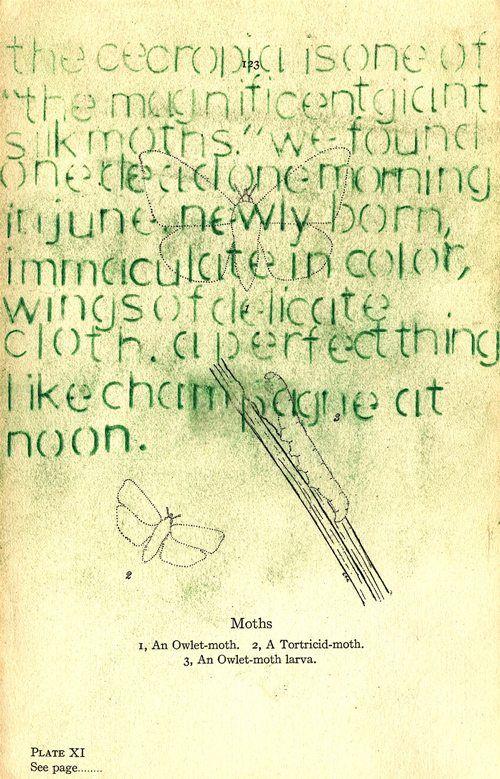 123
the cecropia is one of
"the magnificent giant
silk moths." we found
one dead one morning
in june. newly born,
immaculate in color,
wings of delicate
cloth. a perfect thing
like champagne at
noon.
1
3
2
Moths
1, An Owlet-moth. 2, A Tortricid-moth.
3, An Owlet-moth larva.
PLATE XI
See page........